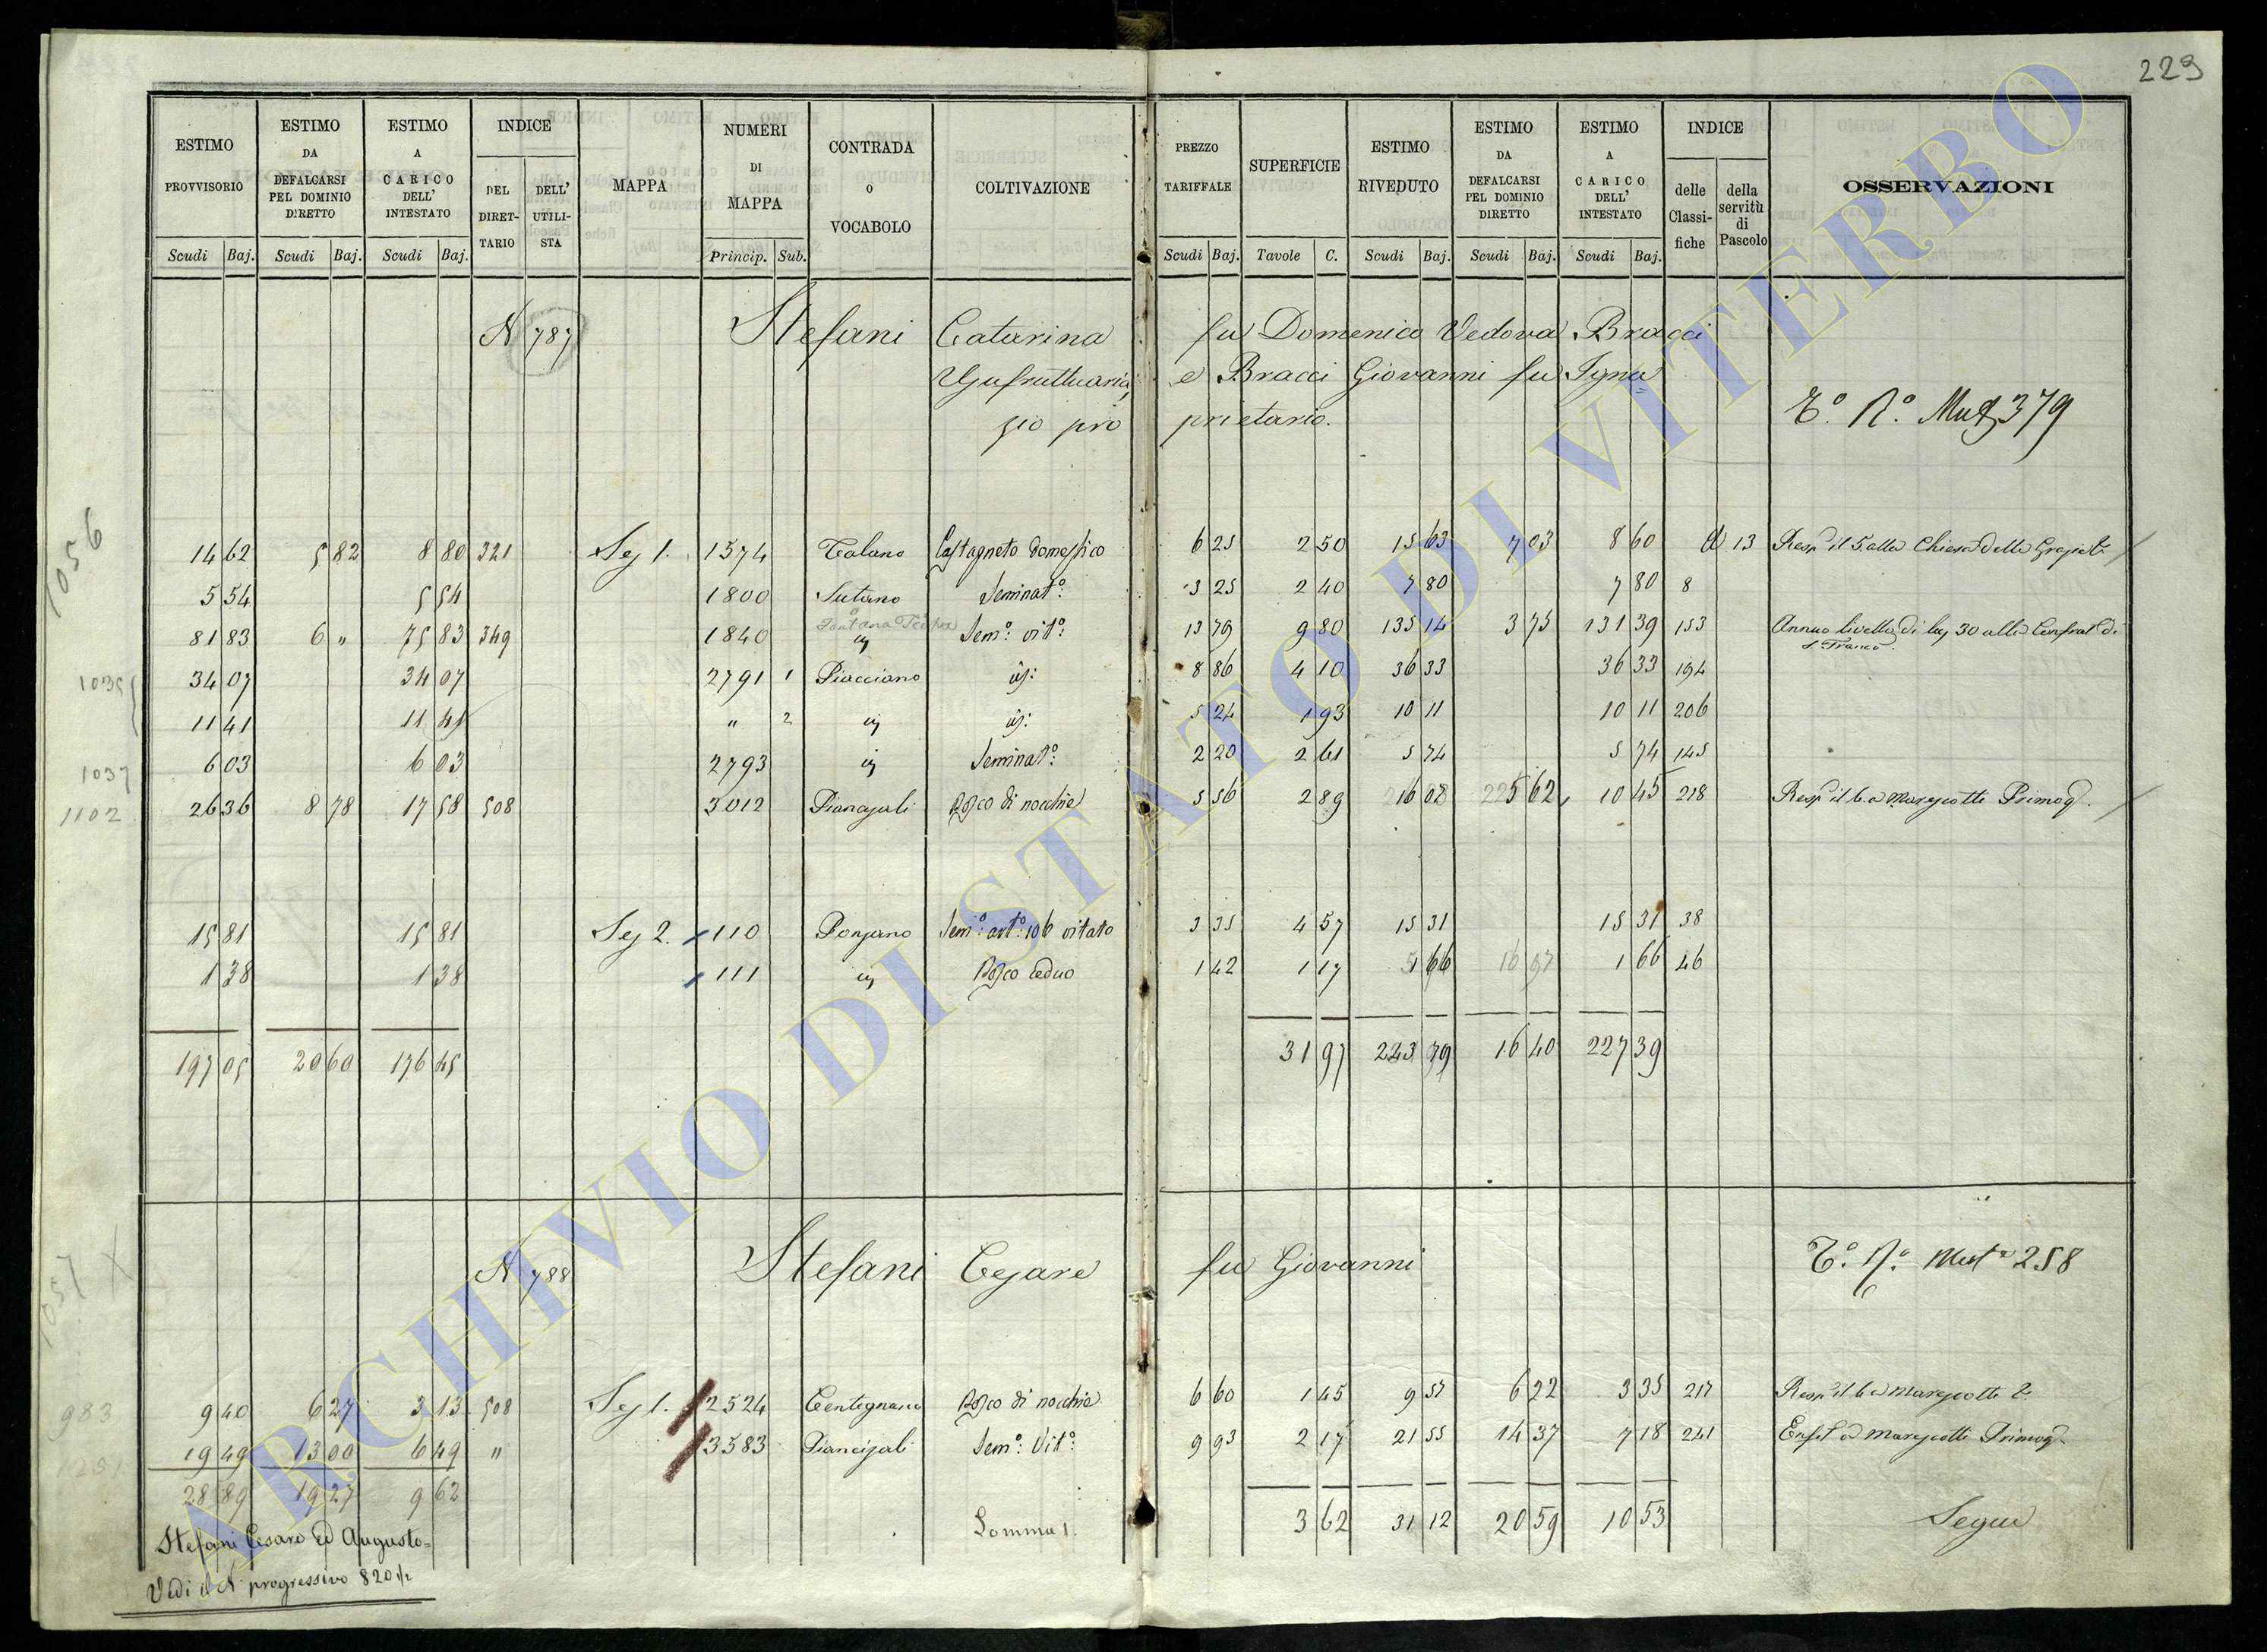 229
ESTIMO PROVVISORIO | ESTIMO DA DEFALCARSI PEL DOMINIO DIRETTO | ESTIMO A CARICO DELL' INTESTATO | INDICE | MAPPA | NUMERI DI MAPPA | CONTRADA O VOCABOLO | COLTIVAZIONE | PREZZO TARIFFALE | SUPERFICIE | ESTIMO RIVEDUTO | ESTIMO DA DEFALCARSI PEL DOMINIO DIRETTO | ESTIMO A CARICO DELL' INTESTATO | INDICE | OSSERVAZIONI
DEL DIRETTARIO | DELL' UTILISTA | delle Classifiche | della servitù di Pascolo
Scudi Baj. | Scudi Baj. | Scudi Baj. | Princip. Sub. | Scudi Baj. | Tavole C. | Scudi Baj. | Scudi Baj. | Scudi Baj.
N 787 Stefani Catarina fu Domenico Vedova Bracci
Usufruttuaria, e Bracci Giovanni fu Igna
zio proprietario.
T.º N.º Mut 379
1056
14 62 | 5 82 | 8 80 | 321 | Sez 1. | 1574 | Talano | Castagneto domestico | 6 25 | 2 50 | 15 63 | 7 03 | 8 60 | 13 | Resp il 5. alla Chiesa delle Grazie
5 54 | 5 54 | 1800 | Sutano | Seminatº: | 3 25 | 2 40 | 7 80 | 7 80 | 8
Fontana
81 83 | 6 " | 75 83 | 349 | 1840 | Semº: vitº: | 13 79 | 9 80 | 135 14 | 3 75 | 131 39 | 153 | Annuo livello di baj 30 alla Confrat di
S Franco
1035
34 07 | 34 07 | 2791 1 | Piacciano | 8 86 | 4 10 | 36 33 | 36 33 | 194
11 41 | 11 41 | " 2 | 5 24 | 1 93 | 10 11 | 10 11 | 206
1037
6 03 | 6 03 | 2793 | Seminatº: | 2 20 | 2 61 | 5 74 | 5 74 | 145
1102
26 36 | 8 78 | 17 58 | 508 | 3012 | Piancisali | Bosco di nocchie | 5 56 | 2 89 | 16 07 | 5 62 | 10 45 | 218 | Resp il 6. a Marescotti Primog.
15 81 | 15 81 | Sez 2. | 110 | Ponzano | Semº: artº: 106 vitato | 3 35 | 4 57 | 15 31 | 15 31 | 38
1 38 | 1 38 | 111 | Bosco ceduo | 1 42 | 1 17 | 1 66 | 1 66 | 46
197 05 | 20 60 | 176 45 | 31 97 | 243 79 | 16 40 | 227 39
1057 X
N 788 Stefani Cesare fu Giovanni
T.º N.º Mutª 258
983
9 40 | 6 27 | 3 13 | 508 | Sez 1. | 2524 | Centignano | Bosco di nocchie | 6 60 | 1 45 | 9 57 | 6 22 | 3 35 | 217 | Resp il 6 a Marescotti
19 49 | 13 00 | 6 49 | " | 3583 | Piancisali | Semº: Vitº: | 9 93 | 2 17 | 21 55 | 14 37 | 7 18 | 241 | Enfit a Marescotti Primog.
28 89 | 19 27 | 9 62
Somma 1. | 3 62 | 31 12 | 20 59 | 10 53 | Segue
Stefani Cesare ed Augusto=
Vedi il N progressivo 820 1/2
ARCHIVIO DI STATO DI VITERBO